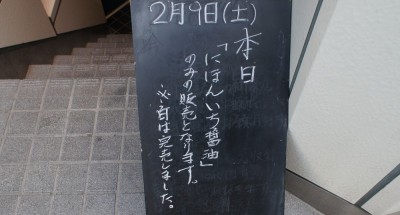 2月9日(土)
本日
「にほんいち醤油」
のみの販売となります。
※白は完売しました。